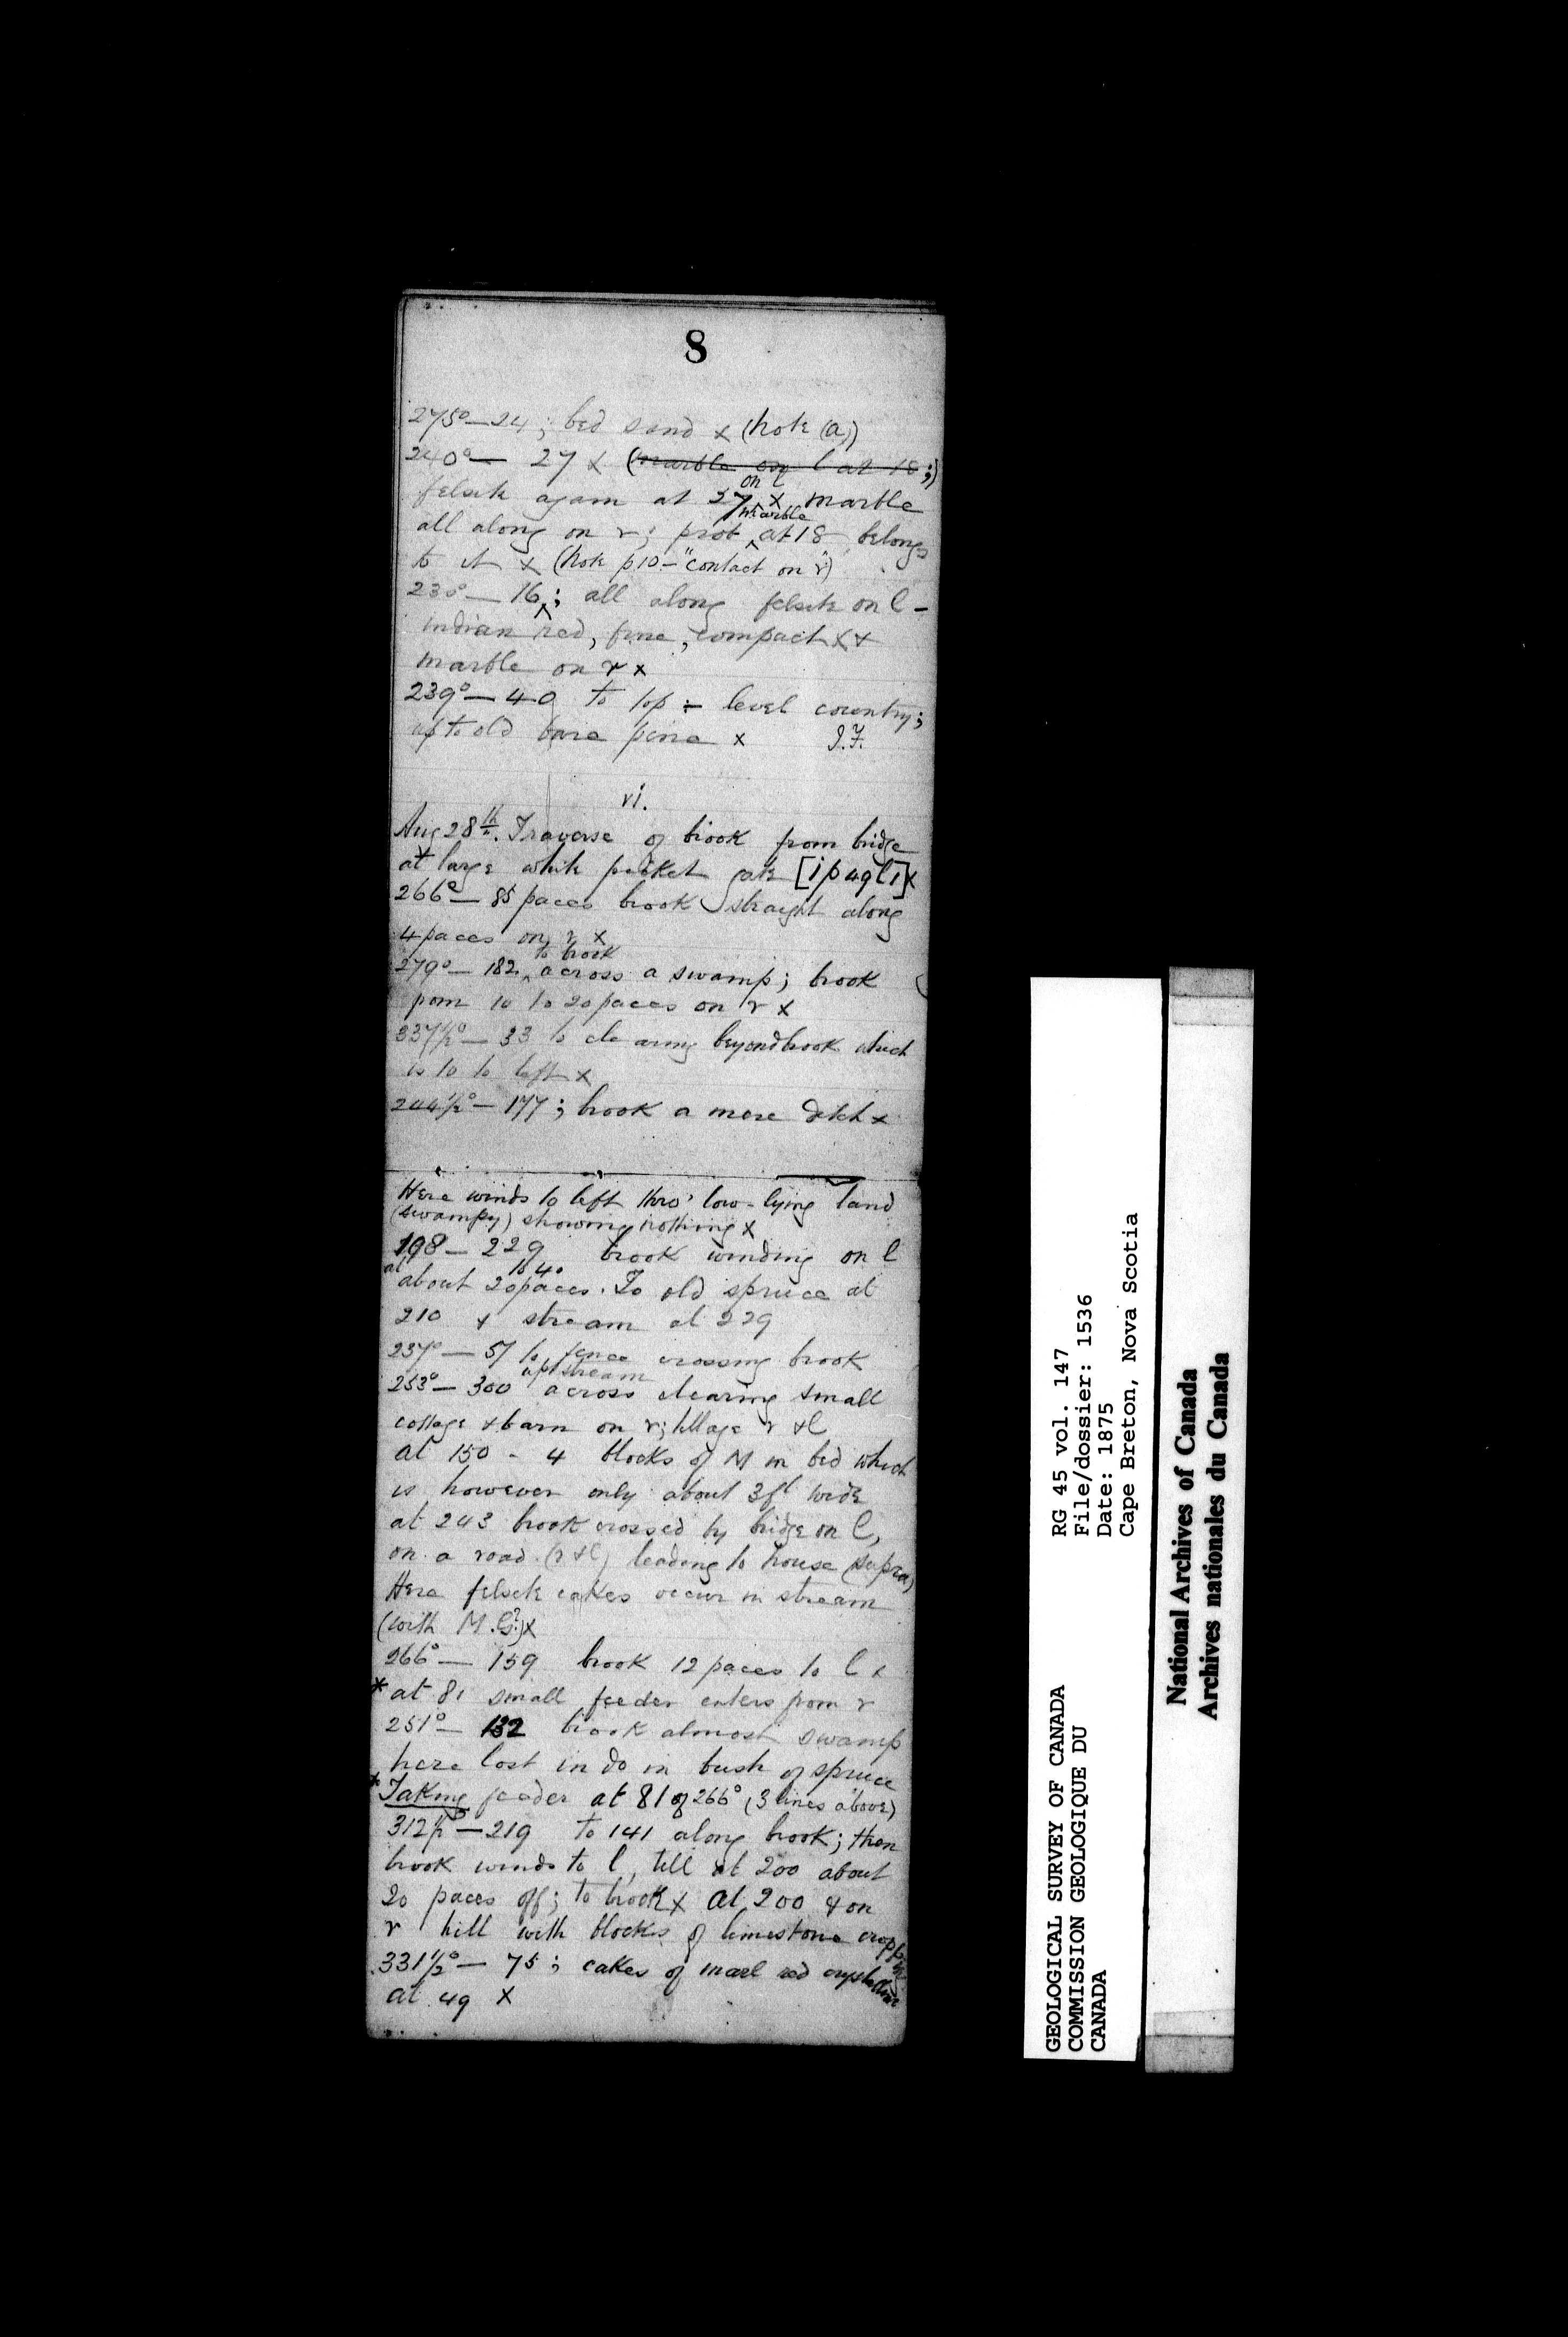 8
275°—24; bed sand x (note (a))
240°— 27 x (marble on l at 18;)
felsite again at 27 on l x marble
all along on r; prob. marble at 18 belongs
to it x (note p10—"contact on r")
230°—16; all along felsite on l -
indian red, fine, compact x &
marble on r x
239°—40 to top ÷ level country;
up to old bare pine x J.F.
vi.
Aug 28th. Traverse of brook from bridge
at large white picket gate [i p49 l1] x
266°—85 paces brook straight along
4 paces on r x
279°—182 to brook across a swamp; brook
from 10 to 20 paces on r x
337½°—33 to clearing beyond brook which
is 10 to left x
244½°—177; brook a mere ditch x
Here winds to left thro' low-lying land
(swampy) showing nothing x
198—229 brook winding on l
at about 20 to 40 paces. To old spruce at
210 & stream at 229
237°—57 to fence crossing brook
253°—300 up stream across clearing small
cottage & barn on r; tillage r & l
at 150 - 4 blocks of M in bed which
is however only about 3ft wide
at 243 brook crossed by bridge on l,
on a road (r & l) leading to house (supra)
Here felsite cakes occur in stream
(with M.G?) x
266°—159 brook 12 paces to l x
* at 81 small feeder enters from r
251°—132 brook almost swamp
here lost in do in bush of spruce
* Taking feeder at 81 of 266° (3 lines above)
312½°—219 to 141 along brook; then
brook winds to l, till at 200 about
20 paces off; to brook x at 200 & on
r hill with blocks of limestone cropping
331½°—75; cakes of marl red crystalline
at 49 x
GEOLOGICAL SURVEY OF CANADA
COMMISSION GEOLOGIQUE DU
CANADA
RG 45 vol. 147
File/dossier: 1536
Date: 1875
Cape Breton, Nova Scotia
National Archives of Canada
Archives nationales du Canada